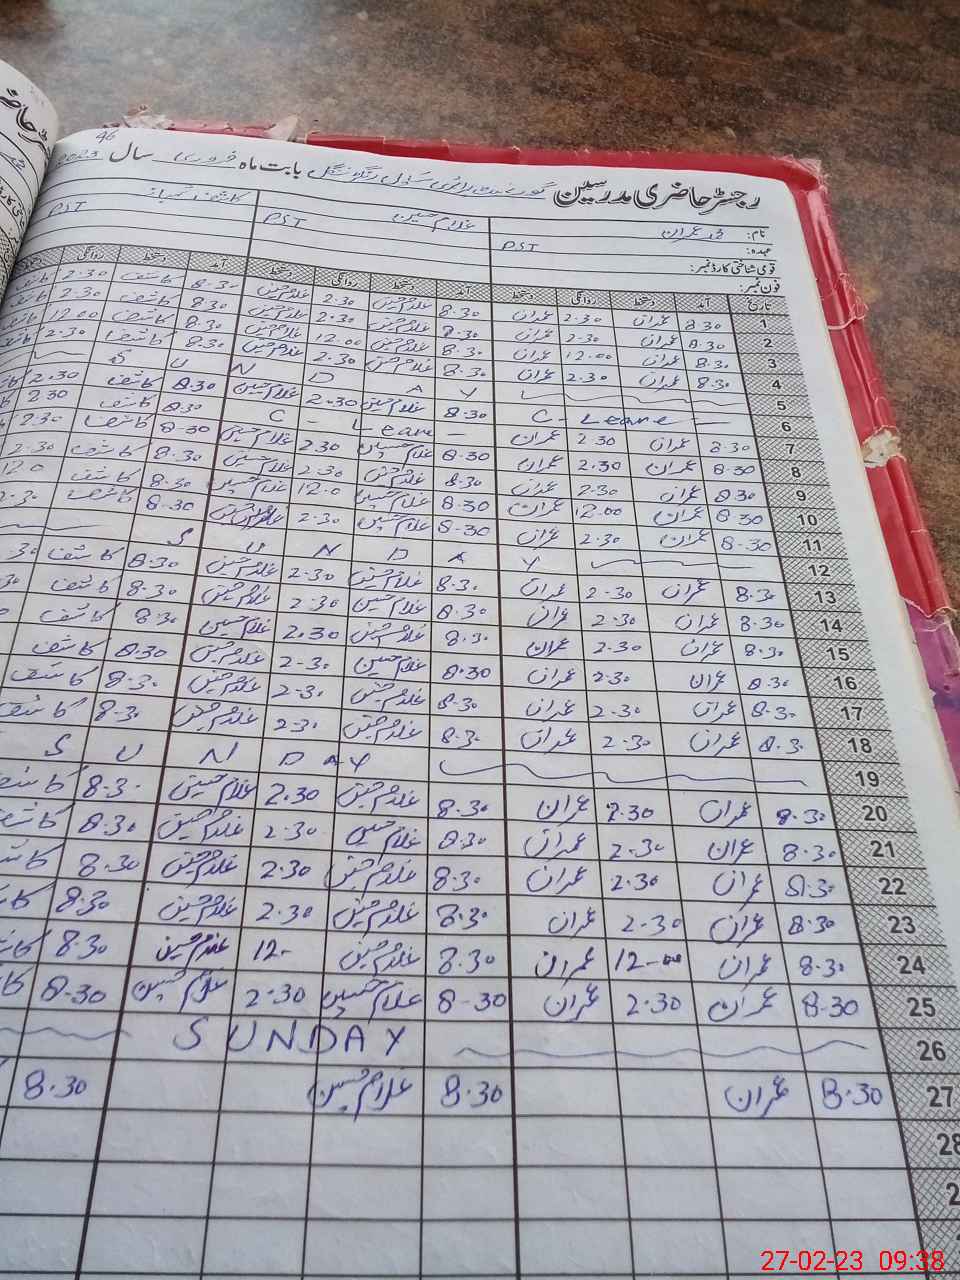 46
رجسٹر حاضری مدرسین گورنمنٹ پرائمری سکول بابت ماہ فروری سال 2023
نام: محمد عمران غلام حسین کاشف
عہدہ: PST PST PST
قومی شناختی کارڈ نمبر:
فون نمبر:
تاریخ آمد دستخط روانگی دستخط آمد دستخط روانگی دستخط آمد دستخط روانگی
1 8.30 عمران 2.30 عمران 8.30 غلام حسین 2.30 غلام حسین 8.30 کاشف 2.30
2 8.30 عمران 2.30 عمران 8.30 غلام حسین 2.30 غلام حسین 8.30 کاشف 2.30
3 8.30 عمران 12.00 عمران 8.30 غلام حسین 12.00 غلام حسین 8.30 کاشف 12.00
4 8.30 عمران 2.30 عمران 8.30 غلام حسین 2.30 غلام حسین 8.30 کاشف 2.30
5 SUNDAY
6 C-Leave 8.30 غلام حسین 2.30 غلام حسین 8.30 کاشف 2.30
7 8.30 عمران 2.30 عمران C-Leave 8.30 کاشف 2.30
8 8.30 عمران 2.30 عمران 8.30 غلام حسین 2.30 غلام حسین 8.30 کاشف 2.30
9 8.30 عمران 2.30 عمران 8.30 غلام حسین 2.30 غلام حسین 8.30 کاشف 2.30
10 8.30 عمران 12.00 عمران 8.30 غلام حسین 12.0 غلام حسین 8.30 کاشف 12.0
11 8.30 عمران 2.30 عمران 8.30 غلام حسین 2.30 غلام حسین 8.30 کاشف 2.30
12 SUNDAY
13 8.30 عمران 2.30 عمران 8.30 غلام حسین 2.30 غلام حسین 8.30 کاشف
14 8.30 عمران 2.30 عمران 8.30 غلام حسین 2.30 غلام حسین 8.30 کاشف
15 8.30 عمران 2.30 عمران 8.30 غلام حسین 2.30 غلام حسین 8.30 کاشف
16 8.30 عمران 2.30 عمران 8.30 غلام حسین 2.30 غلام حسین 8.30 کاشف
17 8.30 عمران 2.30 عمران 8.30 غلام حسین 2.30 غلام حسین 8.30 کاشف
18 8.30 عمران 2.30 عمران 8.30 غلام حسین 2.30 غلام حسین 8.30 کاشف
19 SUNDAY
20 8.30 عمران 2.30 عمران 8.30 غلام حسین 2.30 غلام حسین 8.30
21 8.30 عمران 2.30 عمران 8.30 غلام حسین 2.30 غلام حسین 8.30
22 8.30 عمران 2.30 عمران 8.30 غلام حسین 2.30 غلام حسین 8.30
23 8.30 عمران 2.30 عمران 8.30 غلام حسین 2.30 غلام حسین 8.30
24 8.30 عمران 12-00 عمران 8.30 غلام حسین 12- غلام حسین 8.30
25 8.30 عمران 2.30 عمران 8-30 غلام حسین 2.30 غلام حسین 8.30
26 SUNDAY
27 8.30 عمران 8.30 غلام حسین 8.30
28
27-02-23 09:38